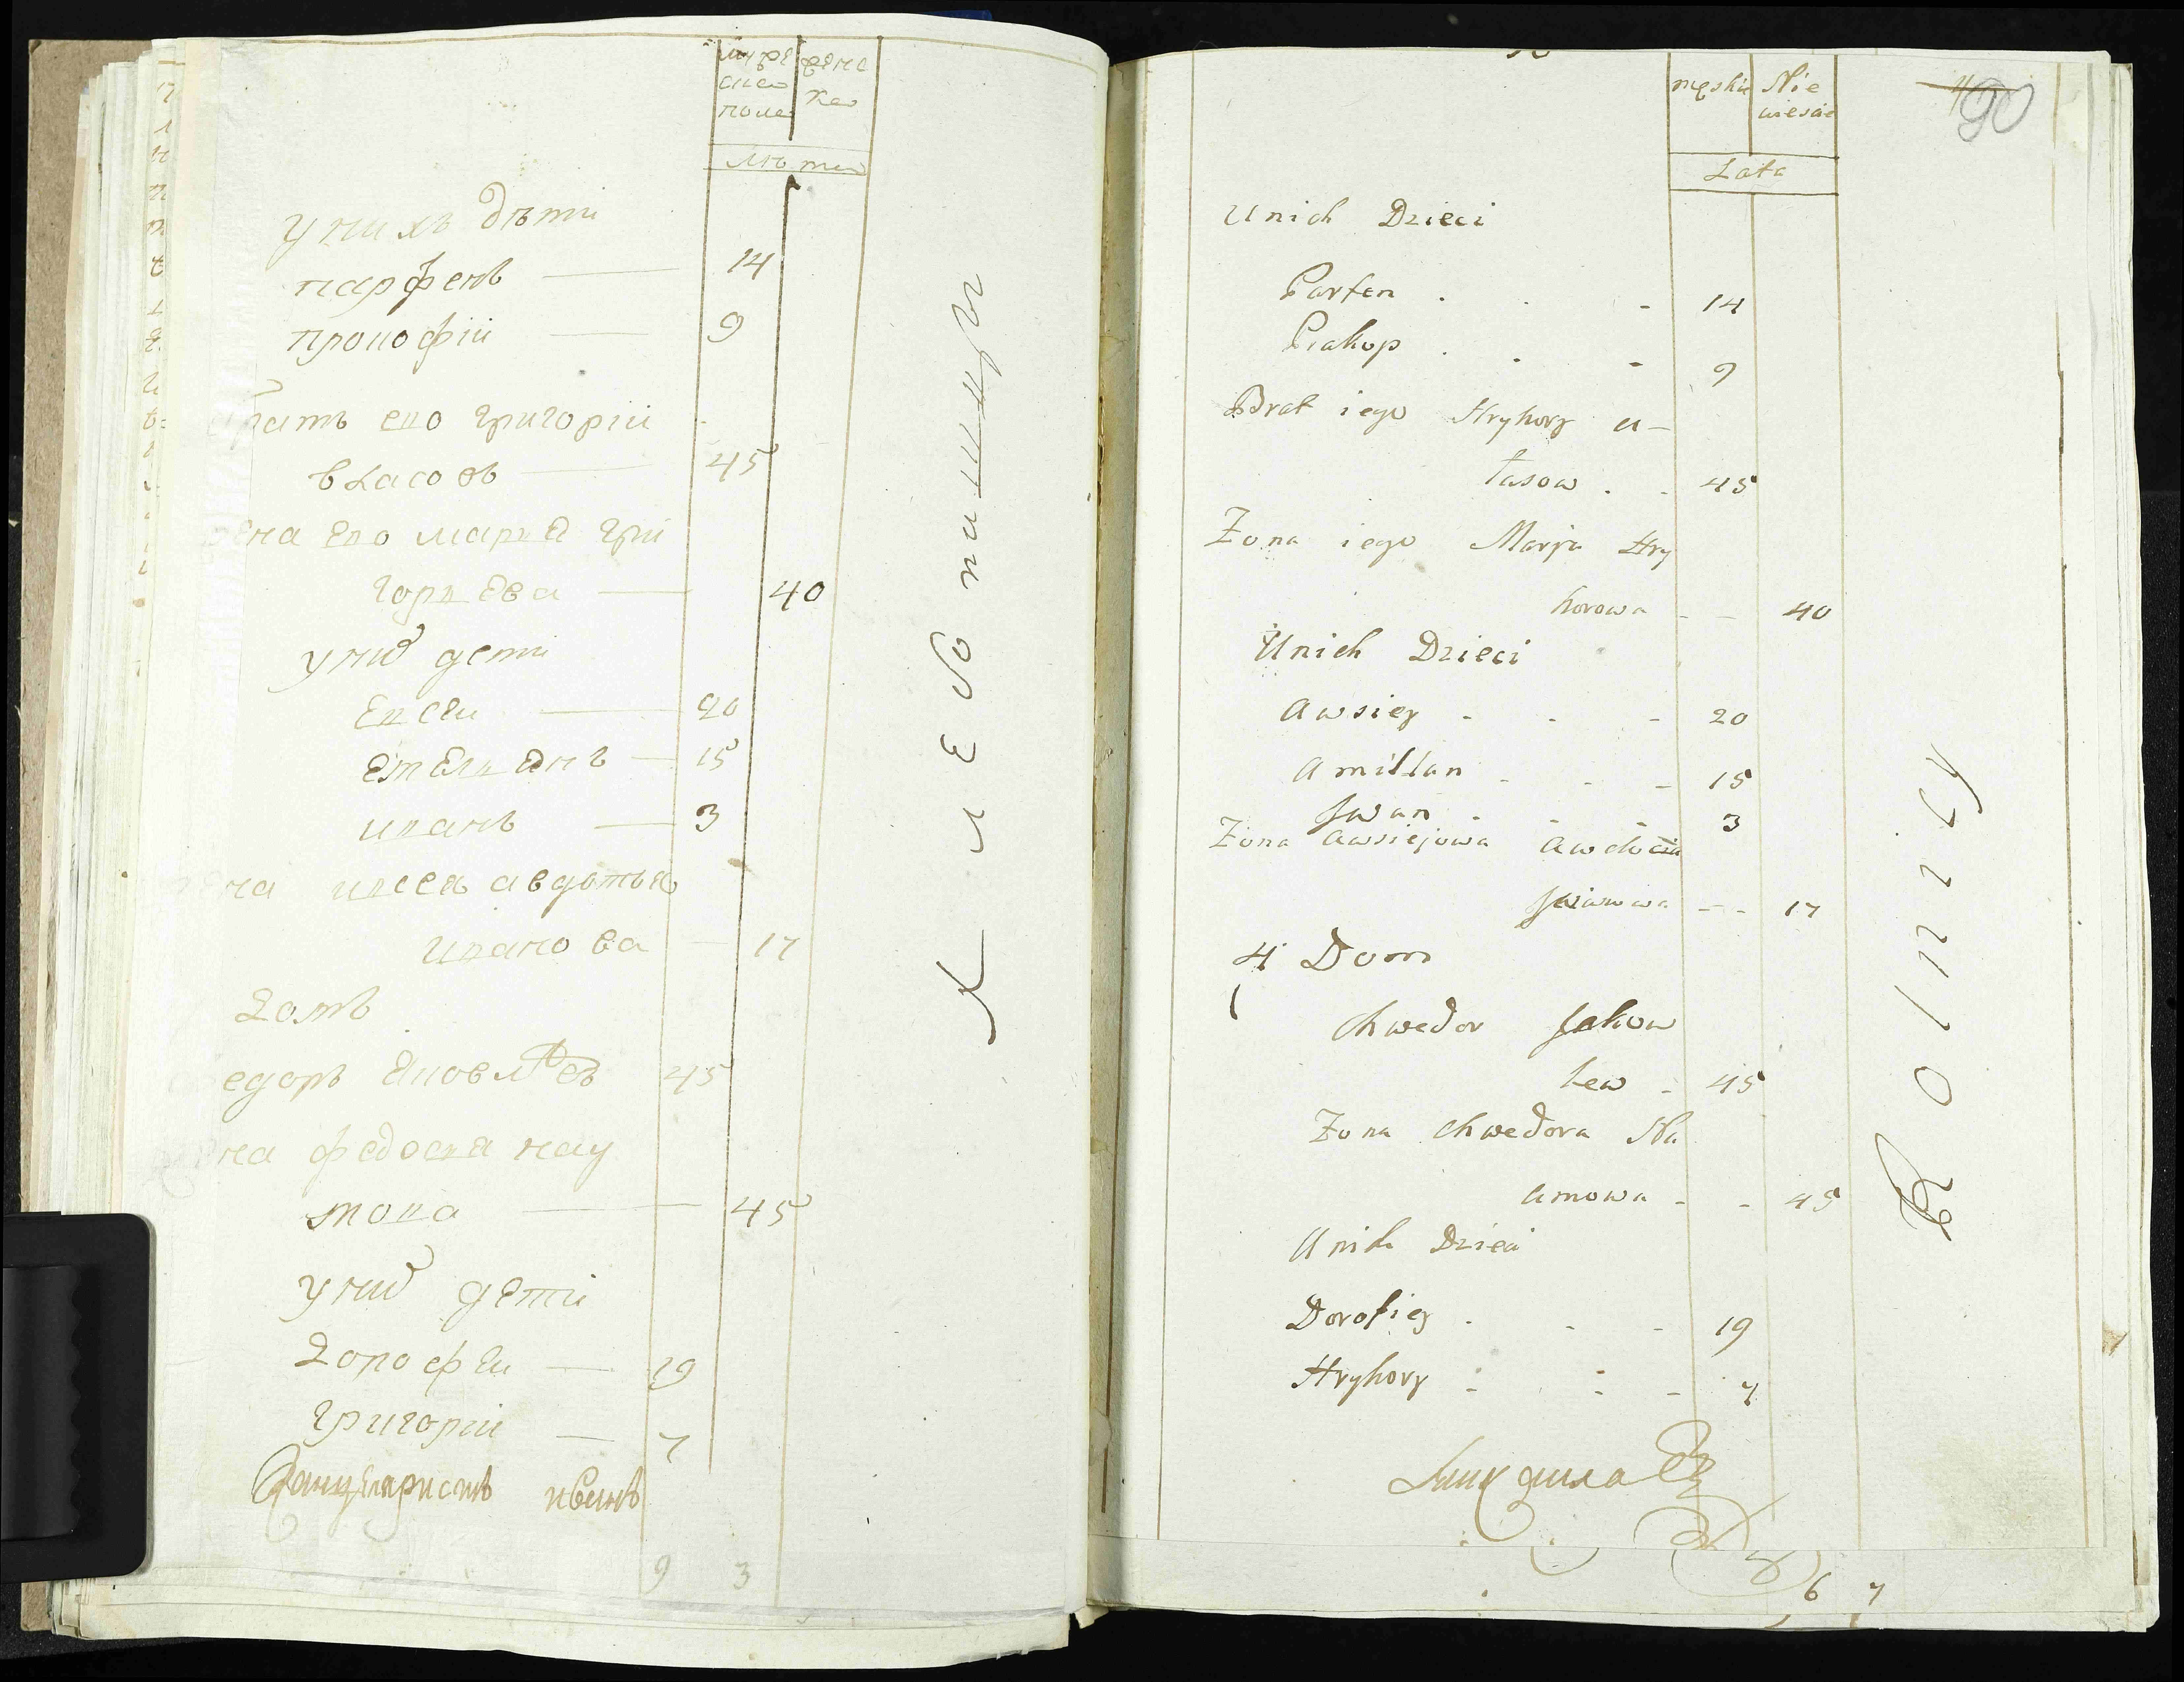 муже жене
ска ска
пола
лѣта
у нихъ дѣти
парфенъ — 14
прокофіи — 9
братъ его григоріи
власовъ — 45
ена его марія гри
горіева — 40
у них дети
Евсеи — 20
Емельянъ — 15
иванъ — 3
на авдотья
иванова — 17
Домъ
едоръ яковлевъ 45
на федосія нау
мова — 45
у них дети
Дорофеи — 19
григоріи — 7
Канцеляристъ
9 3
хлебопашцы
męskie Nie
wiescie
90
Lata
U nich Dzieci
Parfen . . - 14
Prakop . . - 9
Brat iego Hryhory u-
łasow . . 45
Zona iego Marja Hry
horowa - - 40
U nich Dzieci
Awsiey - - - 20
Amillan - - - 15
Jwan - - - 3
Zona Awsiejowa Awdocia
Jwanowa - - 17
4 Dom
Chwedor Jakow
lew - 45
Zona Chwedora Na
umowa - - 45
U nich Dzieci
Dorofiey . - - 19
Hryhory - - - 7
6 7
Rolnicy